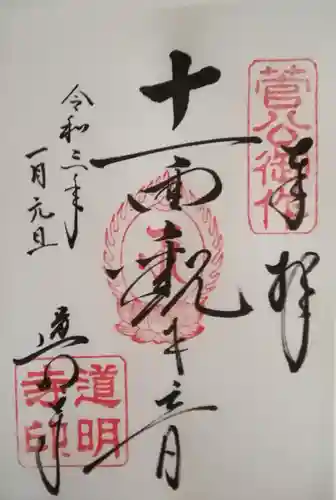 奉拝
菅公御作
十一面観世音
令和三年
一月元旦
道明寺
道明
寺印